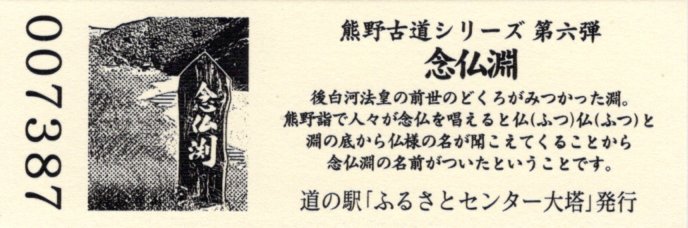 007387
念仏淵
熊野古道シリーズ 第六弾
念仏淵
後白河法皇の前世のどくろがみつかった淵。
熊野詣で人々が念仏を唱えると仏(ふつ)仏(ふつ)と
淵の底から仏様の名が聞こえてくることから
念仏淵の名前がついたということです。
道の駅「ふるさとセンター大塔」発行